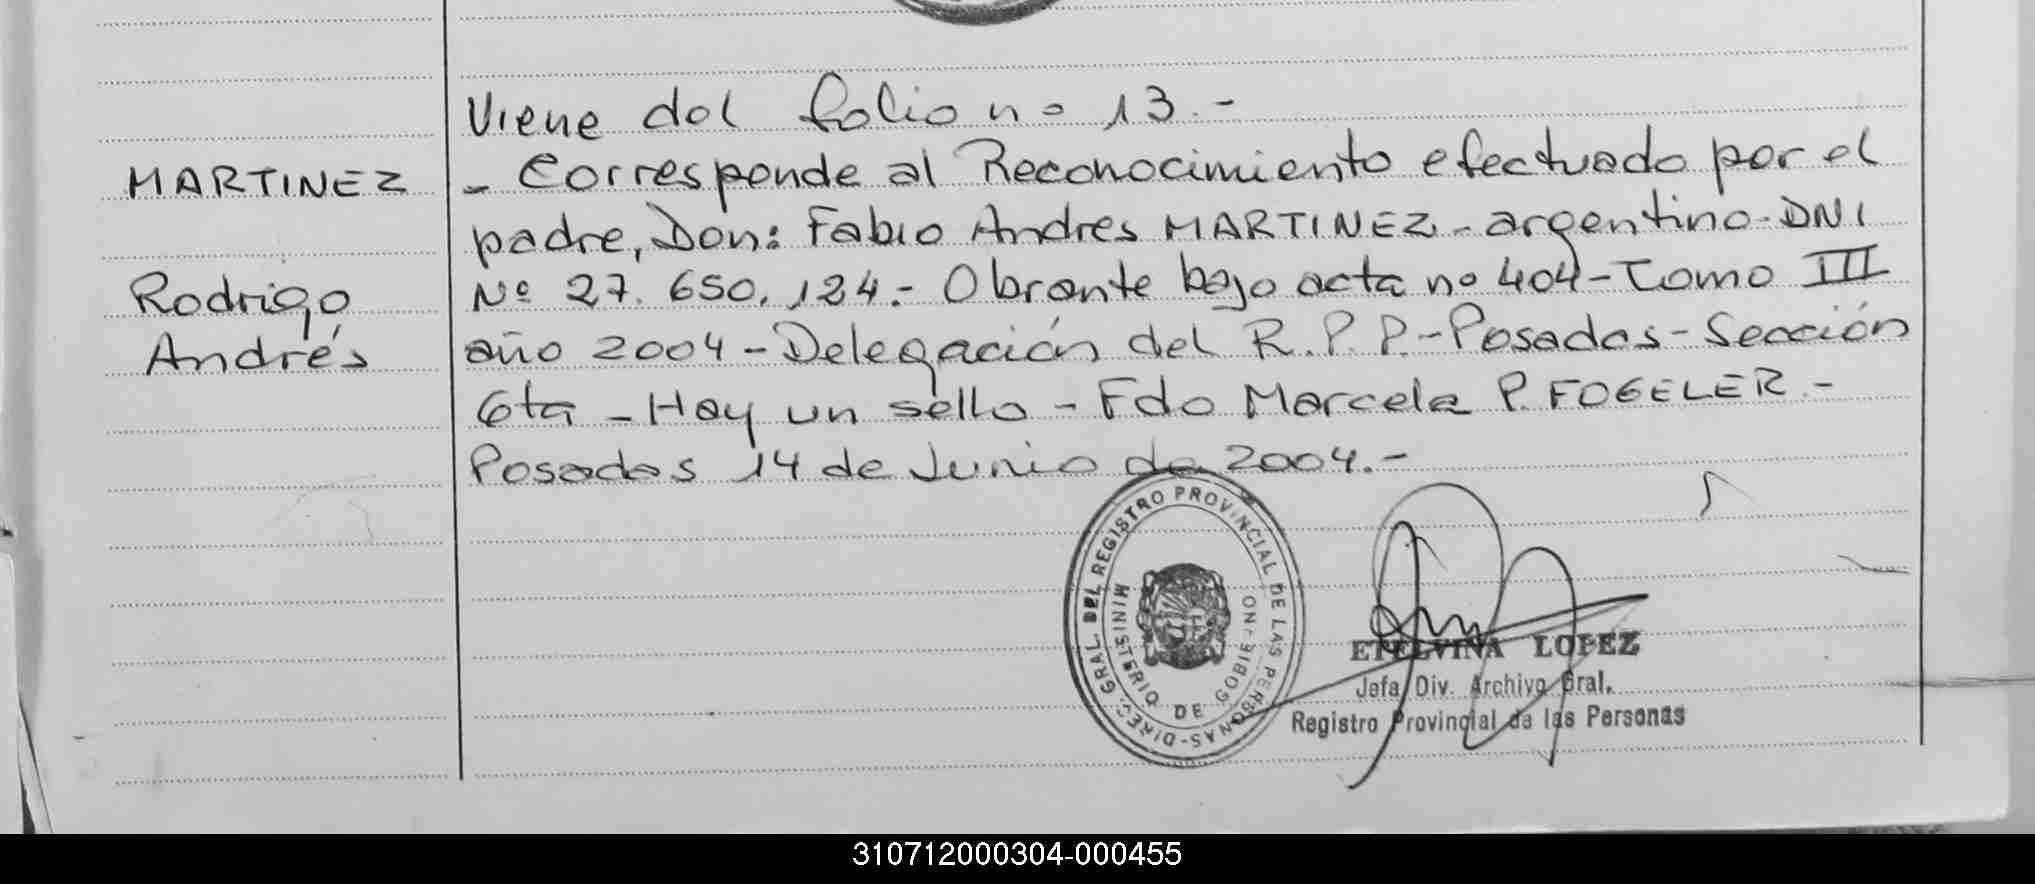 Viene del folio nº 13.-
MARTINEZ
- Corresponde al Reconocimiento efectuado por el
padre, Don: Fabio Andres MARTINEZ - argentino - DNI
Rodrigo
Nº 27.650.124.- Obrante bajo acta nº 404 - Tomo III
Andrés
año 2004 - Delegación del R.P.P. - Posadas - Sección
6ta - Hay un sello - Fdo Marcela P. FOGELER.-
Posadas 14 de Junio de 2004.-
DIREC. GRAL. DEL REGISTRO PROVINCIAL DE LAS PERSONAS-
MINISTERIO DE GOBIERNO
ETELVINA LOPEZ
Jefa Div. Archivo Gral.
Registro Provincial de las Personas
310712000304-000455